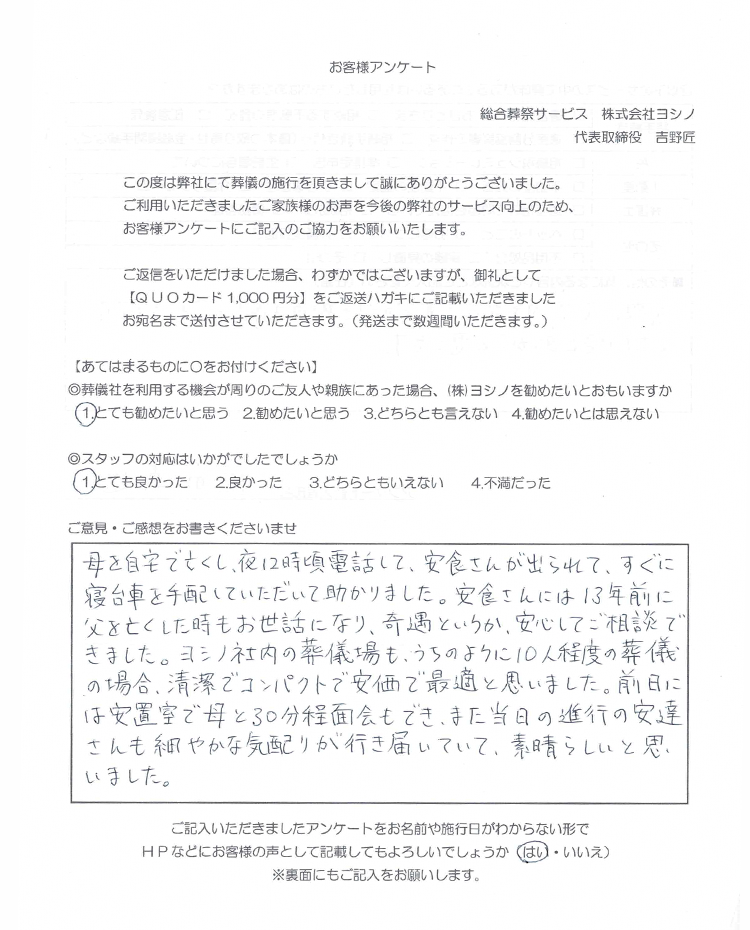 お客様アンケート
総合葬祭サービス 株式会社ヨシノ
代表取締役 吉野匠
この度は弊社にて葬儀の施行を頂きまして誠にありがとうございました。
ご利用いただきましたご家族様のお声を今後の弊社のサービス向上のため、
お客様アンケートにご記入のご協力をお願いいたします。
ご返信をいただけました場合、わずかではございますが、御礼として
【QUOカード1,000円分】をご返送ハガキにご記載いただきました
お宛名まで送付させていただきます。(発送まで数週間いただきます。)
【あてはまるものに○をお付けください】
◎葬儀社を利用する機会が周りのご友人や親族にあった場合、(株)ヨシノを勧めたいとおもいますか
1.とても勧めたいと思う 2.勧めたいと思う 3.どちらとも言えない 4.勧めたいとは思えない
◎スタッフの対応はいかがでしたでしょうか
1.とても良かった 2.良かった 3.どちらともいえない 4.不満だった
ご意見・ご感想をお書きくださいませ
母を自宅で亡くし、夜12時頃電話して、安食さんが出られて、すぐに
寝台車を手配していただいて助かりました。安食さんには13年前に
父を亡くした時もお世話になり、奇遇というか、安心してご相談で
きました。ヨシノ社内の葬儀場も、うちのように10人程度の葬儀
の場合、清潔でコンパクトで安価で最適と思いました。前日に
は安置室で母と30分程面会もでき、また当日の進行の安達
さんも細やかな気配りが行き届いていて、素晴らしいと思
いました。
ご記入いただきましたアンケートをお名前や施行日がわからない形で
HPなどにお客様の声として記載してもよろしいでしょうか(はい・いいえ)
※裏面にもご記入をお願いします。